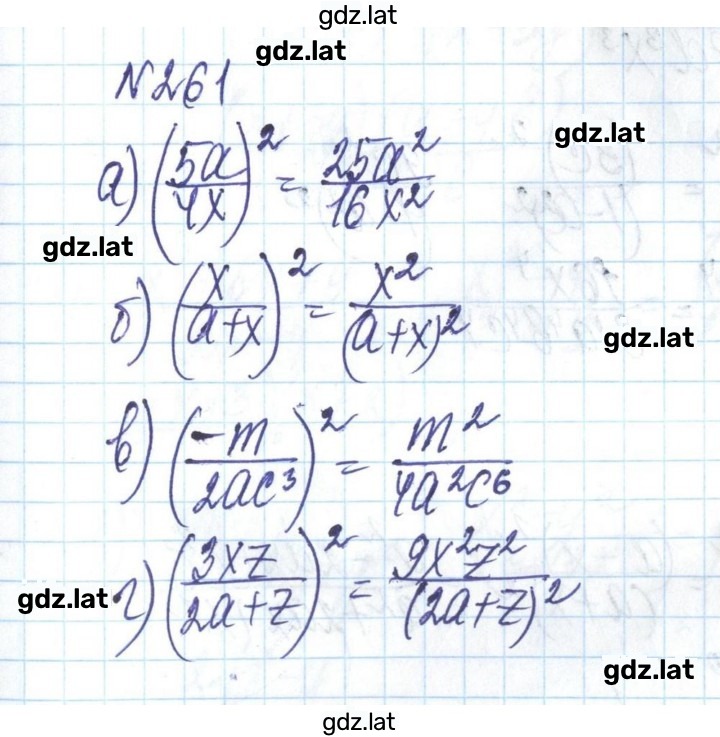 gdz.lat
gdz.lat
№261
gdz.lat
а) (5a/4x)² = 25a²/16x²
gdz.lat
б) (x/a+x)² = x²/(a+x)²
gdz.lat
в) (-m/2ac³)² = m²/4a²c⁶
г) (3xz/2a+z)² = 9x²z²/(2a+z)²
gdz.lat
gdz.lat
gdz.lat